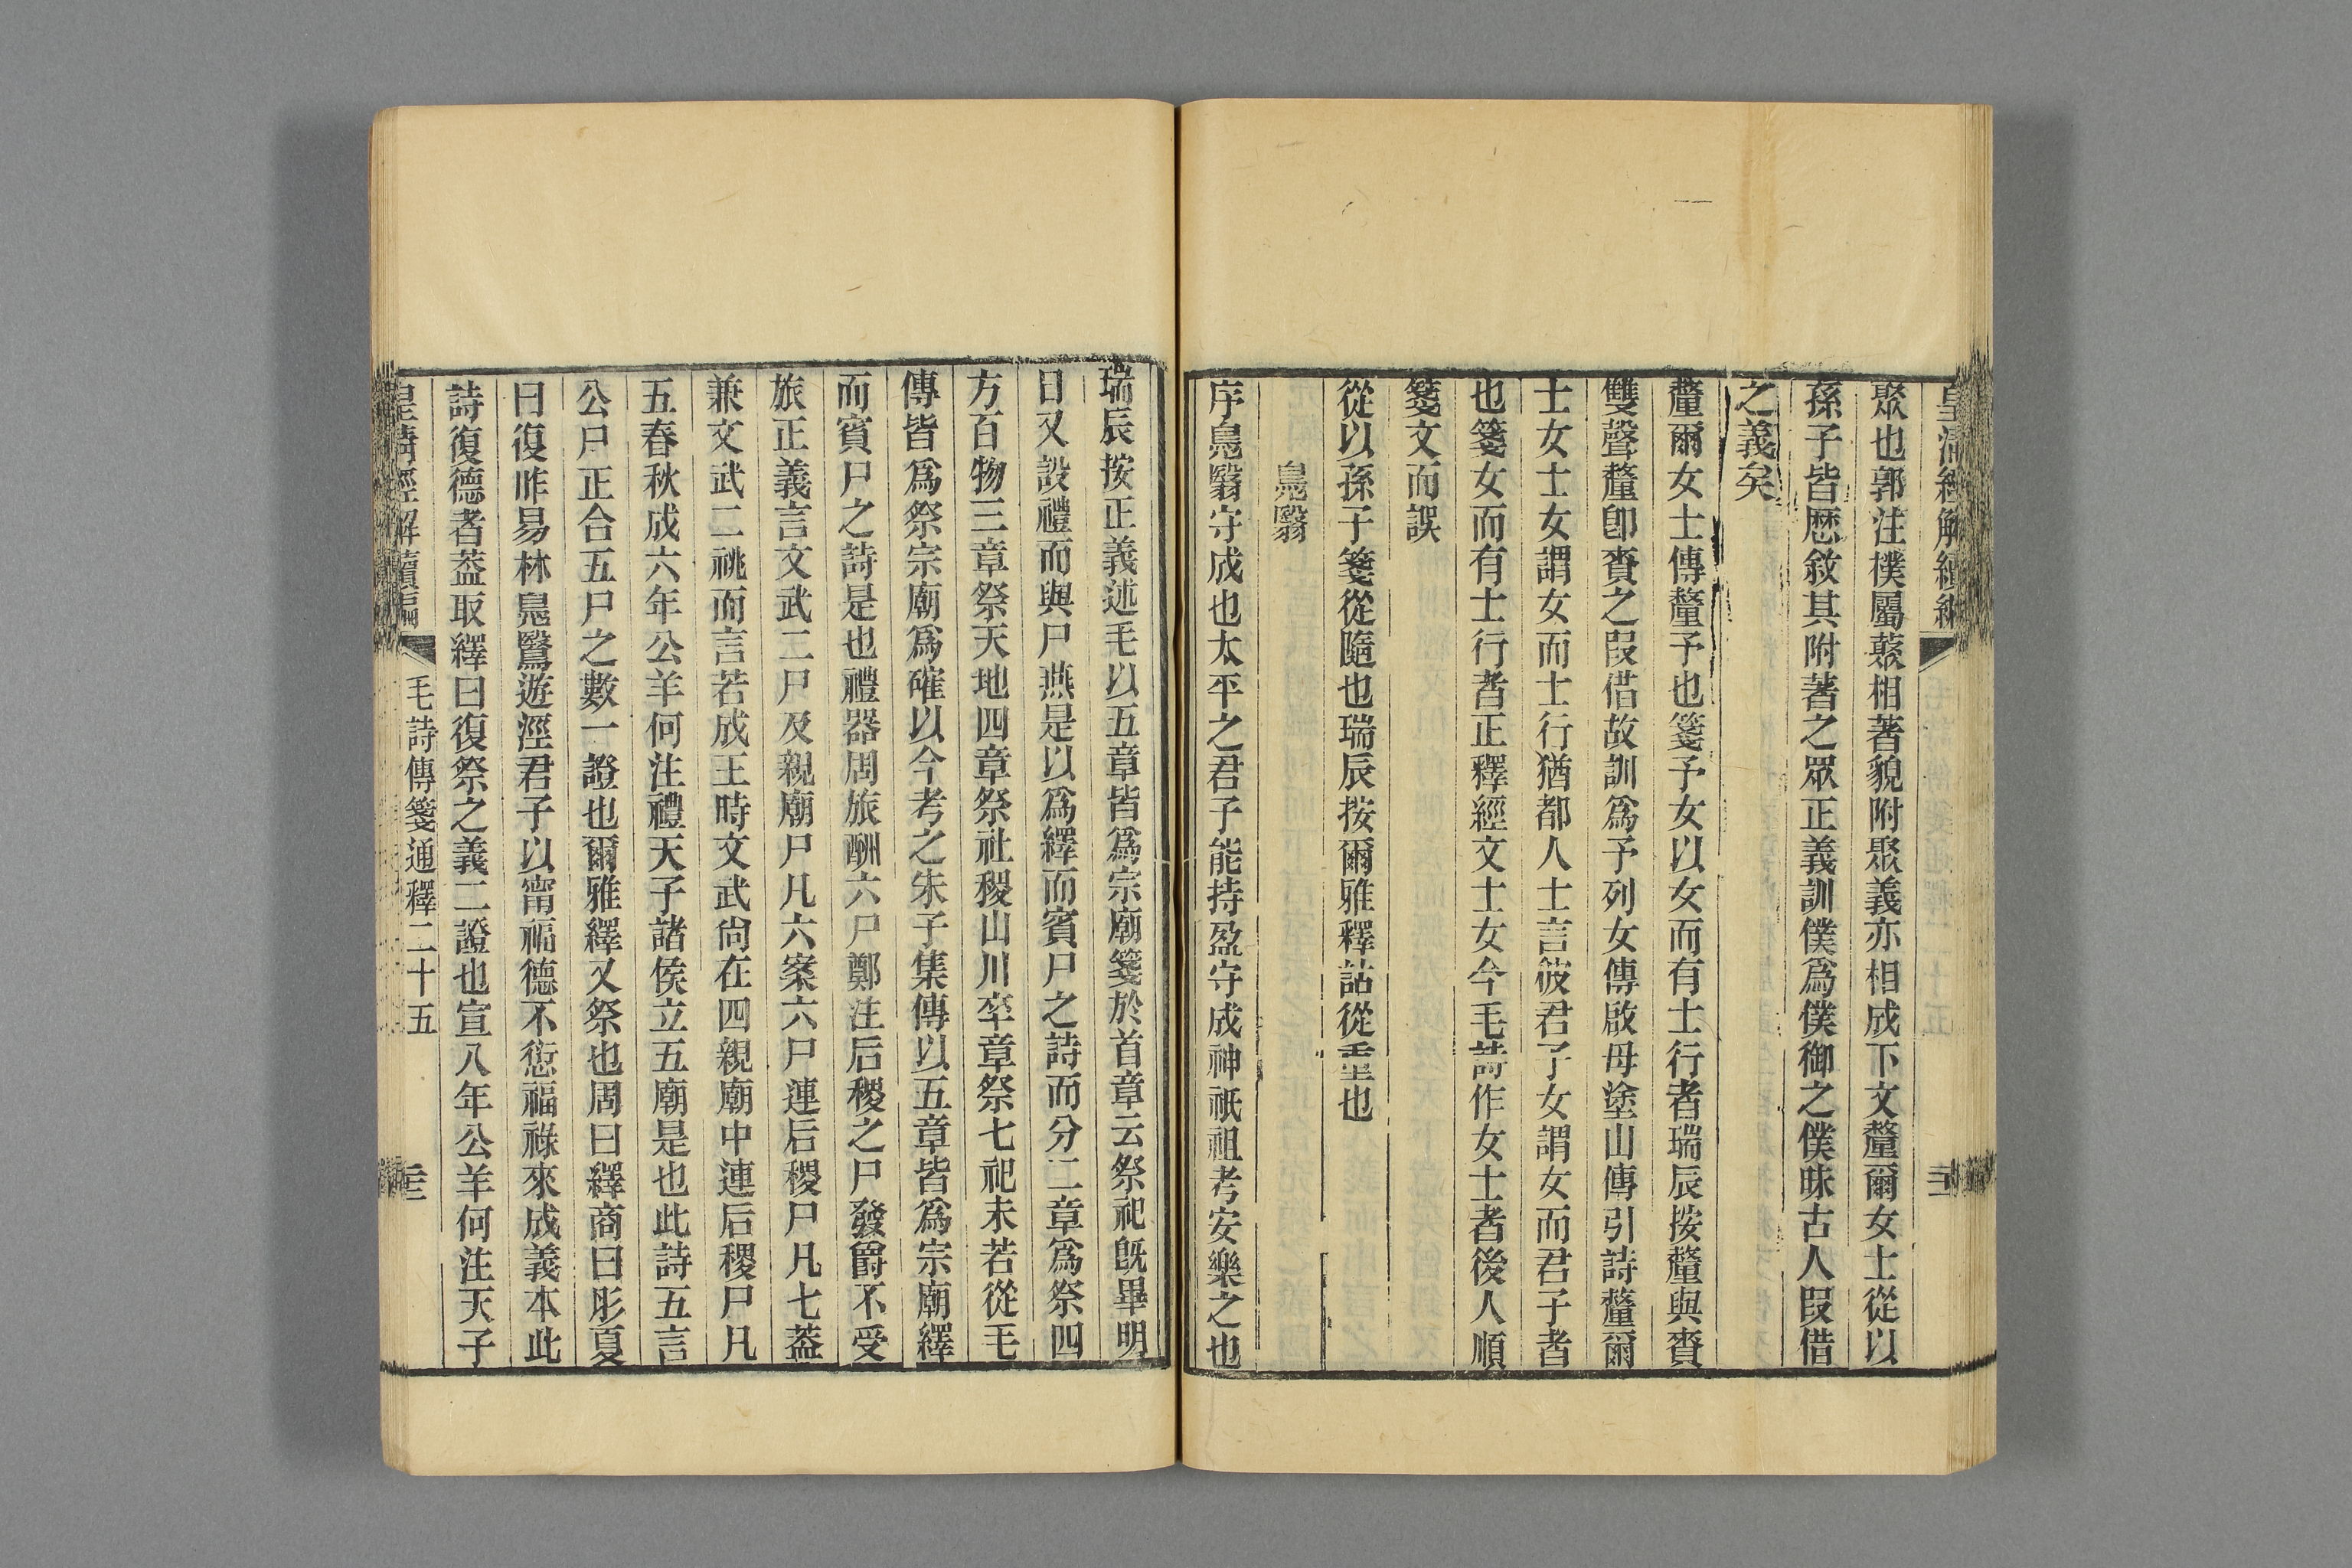 聚也郭注樸屬藂相著貌附聚義亦相成下文釐爾女士從以
孫子皆歷敘其附著之眾正義訓僕爲僕御之僕昧古人叚借
之義矣
釐爾女士傳釐予也箋予女以女而有士行者瑞辰按釐與賚
雙聲釐卽賚之叚借故訓爲予列女傳啟母塗山傳引詩釐爾
士女士女謂女而士行猶都人士言彼君子女謂女而君子者
也箋女而有士行者正釋經文士女今毛詩作女士者後人順
箋文而誤
從以孫子箋從隨也瑞辰按爾雅釋詁從重也
鳧鷖
序鳧鷖守成也太平之君子能持盈守成神祇祖考安樂之也
瑞辰按正義述毛以五章皆爲宗廟箋於首章云祭祀旣畢明
日又設禮而與尸燕是以爲繹而賓尸之詩而分二章爲祭四
方百物三章祭天地四章祭社稷山川卒章祭七祀未若從毛
傳皆爲祭宗廟爲確以今考之朱子集傳以五章皆爲宗廟繹
而賓尸之詩是也禮器周旅酬六尸鄭注后稷之尸發爵不受
旅正義言文武二尸及親廟尸凡六案六尸連后稷尸凡七葢
兼文武二祧而言若成王時文武尙在四親廟中連后稷尸凡
五春秋成六年公羊何注禮天子諸侯立五廟是也此詩五言
公尸正合五尸之數一證也爾雅繹又祭也周曰繹商曰肜夏
曰復胙易林鳧鷖遊涇君子以甯福德不愆福祿來成義本此
詩復德者葢取繹曰復祭之義二證也宣八年公羊何注天子
皇清經解續編 毛詩傳箋通釋二十五